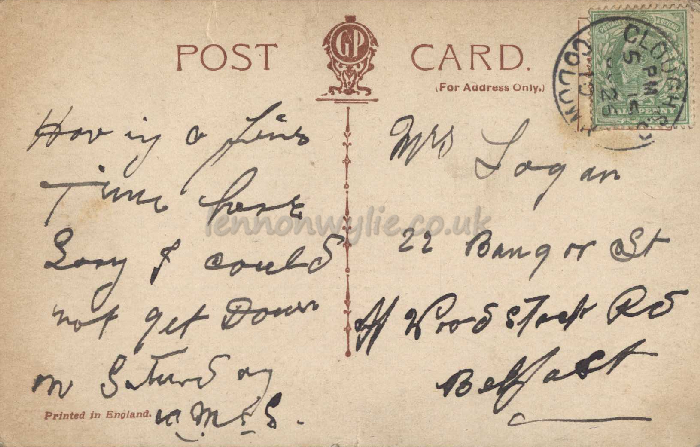 POST CARD.
GP
(For Address Only.)
CLOUGH
5 PM
HALFPENNY
Having a fine
Time here
Sory I could
not get Down
on Saturday
Mrs Logan
22 Bangor St
Woodstock Rd
Belfast
Printed in England.
lennonwylie.co.uk